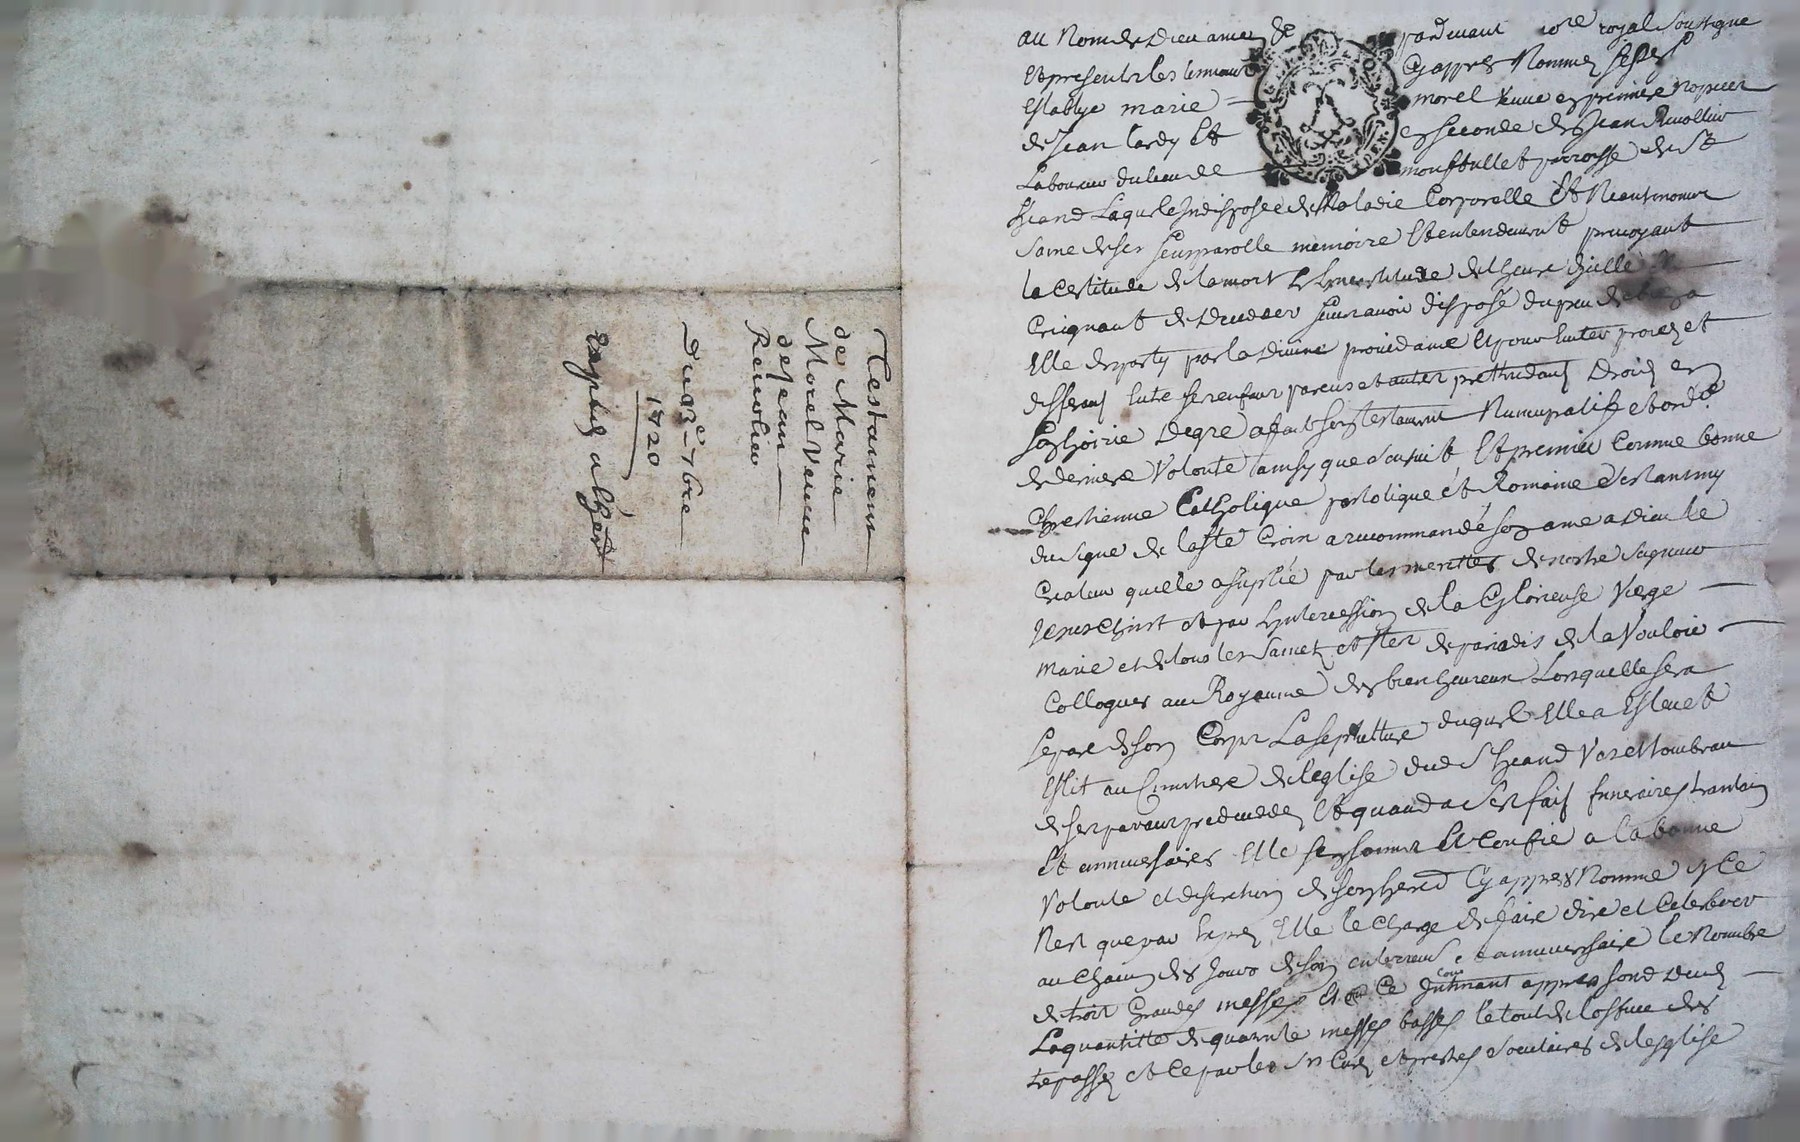 Testament
de Marie
Morel Veuve
de Jean
Revolier
Du 23e 7bre
1720
Expedié a l'hert
au Nom de Dieu amen & pardevant nore royal soubsigné
Et presents les temoins Cy appres Nommez fust
Establye marie morel veuve en premiere nopces
de Jean tardy Et en seconde de Jean Revollier
Laboureur du lieu de parroisse de St
heand Laquelle Indisposée de Maladie Corporelle Et Neantmoins
saine de ses sens parolle memoire Et entendement prevoyant
la Certitude de la mort & L'Incertitude de l'heure d'icelle Et
Craignant de deceder sans avoir disposé du peu de biens a
Elle departy par la divine providance Et pour Eviter procez et
differans Entre ses enfans parens et autres prethendans Droict en
son hoirie De gré a fait son testament Nuncupatif et ordce
de derniere volonté ainsy que s'ensuit Et premier Comme bonne
Chrestienne Catholique apostolique et Romaine s'estant muny
du signe de la ste Croix a recommandé son ame a Dieu le
Createur qu'elle a suplié par les merittes de nostre seigneur
Jesus Christ et par L'Intercession de la Glorieuse Vierge
Marie et de tous les saincts et stes de paradis de la Vouloir
Colloquer au Royaume des bienheureux Lors qu'elle sera
separe de son Corps La sepulture duquel Elle a Esleue Et
Eslit au Cimetiere de l'eglise dud St heand Vas et tombeau
de ses parans predecedez Et quand a ses frais funeraires trantain
Et anniversaires Elle s'en soumet Et Confie a la bonne
Volonté et discretion de son herer Cy appres Nommé Si Ce
N'est que par Exprez Elle le Charge de faire dire et Celebrer
au Chacun des Jours de son enterrement et anniversaire le Nombre
de trois Grandes messes Et Ce Incontinant appres sond Decedz
La quantitté de quarante messes basses le tout de l'office des
trepassez et Ce par les Srs Curé et prestres societaires de l'esglise